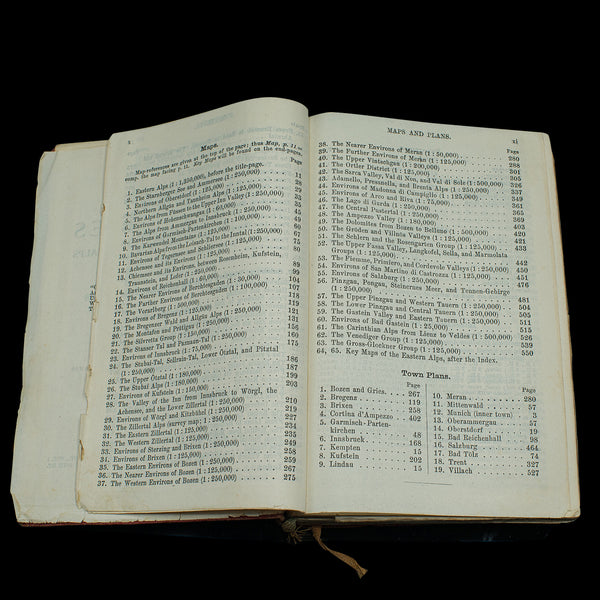 x
Maps.
Map-references are given at the top of the page; thus Map, p. 11 =
the map facing p. 11. Key Maps will be found on the end-pages.
Page
1. Eastern Alps (1:1,350,000), before the title-page.
2. The Starnberger See and Ammersee (1:250,000) 11
3. Environs of Oberstdorf (1:125,000) 28
4. Northern Algäu and Tannheim Alps (1:125,000) 29
5. The Alps from Füssen to the Upper Inn Valley (1:250,000) 33
6. Environs of Hohenschwangau (1:60,000) 35
7. The Alps from Ammergau to Innsbruck (1:250,000) 45
8. Environs of Garmisch-Partenkirchen (1:100,000) 49
9. The Karwendel Mountains (1:125,000) 60
10. Bavarian Alps from the Loisach-Tal to the Inntal (1:250,000) 67
11. Environs of Tegernsee and Schliersee (1:125,000) 75
12. Achensee and its Environs (1:125,000) 80
13. Chiemsee and its Environs, between Rosenheim, Kufstein,
Traunstein, and Lofer (1:250,000)
14. Environs of Reichenhall
15. The Nearer Environs of Berchtesgaden (1:50,000) 104
16. The Further Environs of Berchtesgaden (1:100,000) 107
17. The Vorarlberg (1:500,000) 118
18. Environs of Bregenz (1:125,000) 119
19. The Bregenzer Wald and Allgäu Alps (1:250,000) 131
20. The Montafon and Prätigau (1:250,000) 156
21. The Silvretta Group (1:150,000) 160
22. The Stanser Tal and Paznaun-Tal (1:250,000)
23. Environs of Innsbruck (1:75,000) 175
24. The Stubai-Tal, Sellrain-Tal, Lower Ötztal, and Pitztal
(1:250,000) 186
25. The Upper Ötztal (1:180,000) 187
26. The Stubai Alps (1:180,000) 199
27. Environs of Kufstein (1:150,000) 203
28. The Valley of the Inn from Innsbruck to Wörgl, the
Achensee, and the Lower Zillertal (1:250,000) 210
29. Environs of Wörgl and Kitzbühel (1:250,000) 219
30. The Zillertal Alps (survey map; 1:250,000) 227
31. The Eastern Zillertal (1:125,000) 234
32. The Western Zillertal (1:125,000) 235
33. Environs of Sterzing and Brixen (1:250,000) 249
34. Environs of Brixen (1:250,000)
35. The Eastern Environs of Bozen (1:250,000) 259
36. The Nearer Environs of Bozen (1:50,000) 267
37. The Western Environs of Bozen (1:250,000) 275
MAPS AND PLANS. xi
Page
38. The Nearer Environs of Meran (1:50,000) 280
39. The Further Environs of Meran (1:125,000) 289
40. The Upper Vintschgau (1:200,000) 301
41. The Ortler District (1:125,000) 305
42. The Sarca Valley, Val di Non, and Val di Sole (1:500,000) 326
43. Adamello, Presanella, and Brenta Alps (1:250,000) 337
44. Environs of Madonna di Campiglio (1:125,000) 349
45. Environs of Arco and Riva (1:75,000) 361
46. The Lago di Garda (1:250,000)
47. The Central Pustertal (1:250,000) 365
48. The Ampezzo Valley (1:250,000) 369
49. The Dolomites from Bozen to Belluno (1:500,000) 403
50. The Gröden and Villnös Valleys (1:125,000) 420
51. The Schlern and the Rosengarten Group (1:125,000) 421
52. The Upper Fassa Valley, Langkofel, Sella, and Marmolata
Groups (1:125,000) 433
53. The Fiemme, Primiero, and Cordevole Valleys (1:250,000) 442
54. Environs of San Martino di Castrozza (1:125,000) 450
55. Environs of Salzburg (1:250,000) 451
56. Pinzgau, Pongau, Steinernes Meer, and Tennen-Gebirge
(1:250,000) 476
57. The Upper Pinzgau and Western Tauern (1:250,000) 481
58. The Lower Pinzgau and Central Tauern (1:250,000) 504
59. The Gastein Valley and Eastern Tauern (1:250,000) 505
60. Environs of Bad Gastein (1:25,000) 511
61. The Carinthian Alps from Lienz to Velden (1:500,000) 515
62. The Venediger Group (1:125,000) 526
63. The Gross-Glockner Group (1:125,000) 539
64, 65. Key Maps of the Eastern Alps, after the Index. 550
Town Plans.
Page
1. Bozen and Gries 267
2. Bregenz 119
3. Brixen 258
4. Cortina d'Ampezzo 402
5. Garmisch-Parten-
kirchen 48
6. Innsbruck 168
7. Kempten 15
8. Kufstein 202
9. Lindau 15
Page
10. Meran 280
11. Mittenwald 57
12. Munich (inner town) 3
13. Oberammergau 57
14. Oberstdorf 19
15. Bad Reichenhall 98
16. Salzburg 464
17. Bad Tölz 74
18. Trent 327
19. Villach 527